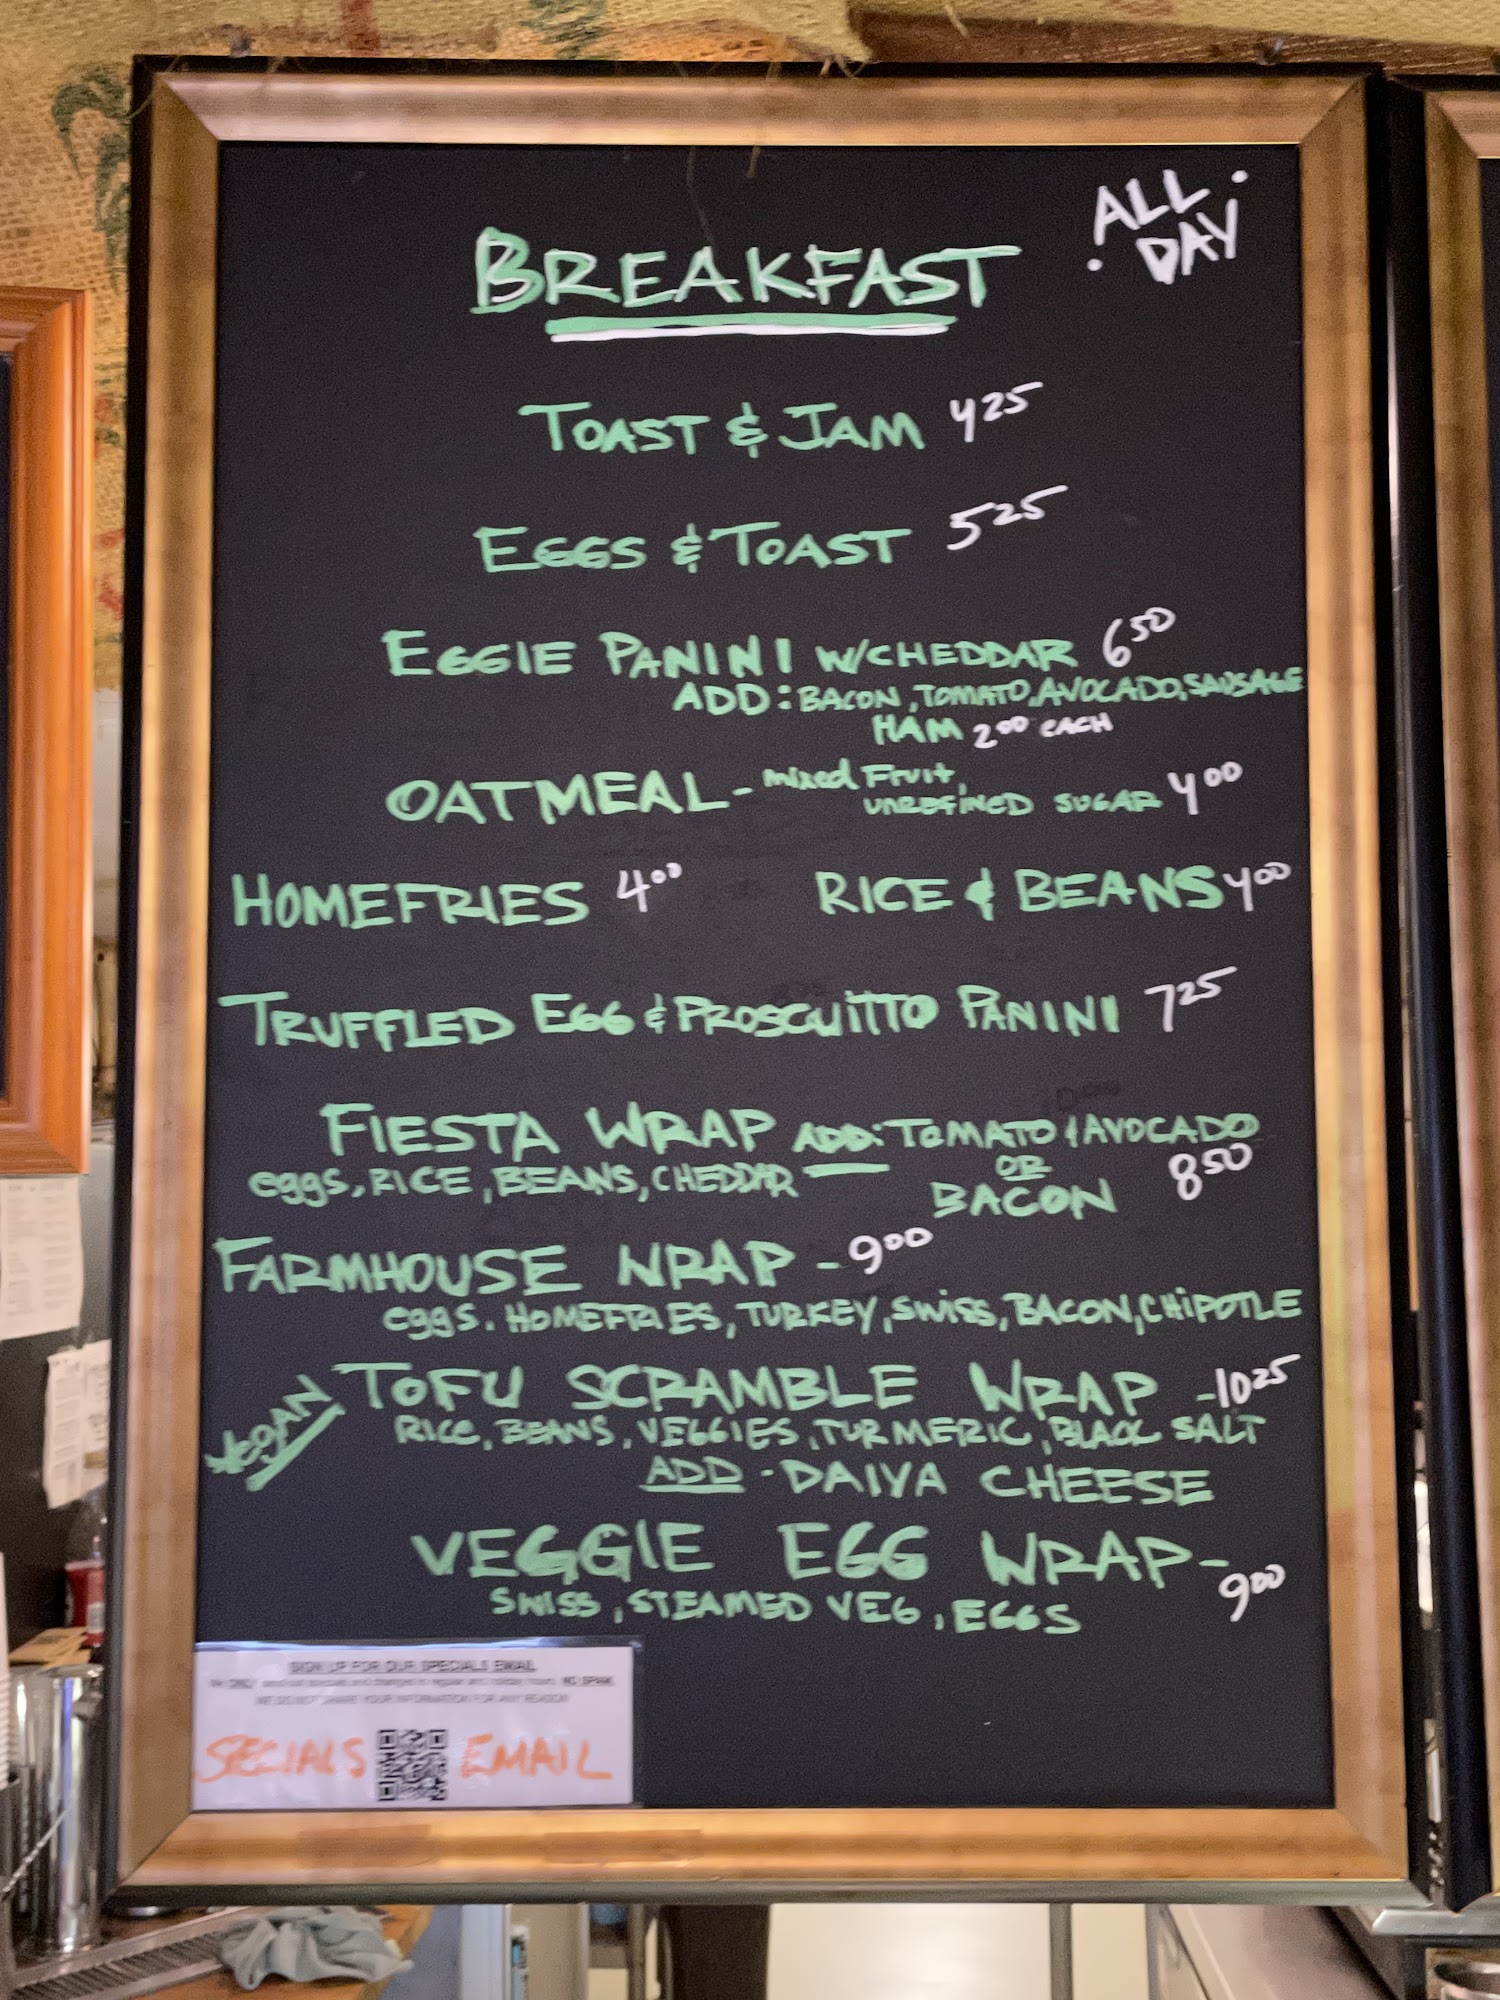 ALL
DAY
BREAKFAST
TOAST & JAM 4 25
EGGS & TOAST 5 25
EGGIE PANINI W/CHEDDAR 6 50
ADD: BACON, TOMATO, AVOCADO, SAUSAGE
HAM 2 00 EACH
OATMEAL - mixed Fruit,
UNREFINED SUGAR 4 00
HOMEFRIES 4 00 RICE & BEANS 4 00
TRUFFLED EGG & PROSCUITTO PANINI 7 25
FIESTA WRAP ADD: TOMATO & AVOCADO
OR
eggs, RICE, BEANS, CHEDDAR BACON 8 50
FARMHOUSE WRAP - 9 00
eggs. HOMEFRIES, TURKEY, SWISS, BACON, CHIPOTLE
VEGAN TOFU SCRAMBLE WRAP - 10 25
RICE, BEANS, VEGGIES, TURMERIC, BLACK SALT
ADD - DAIYA CHEESE
VEGGIE EGG WRAP - 9 00
SWISS, STEAMED VEG, EGGS
SIGN UP FOR OUR SPECIALS EMAIL
WE DO NOT SHARE YOUR INFORMATION FOR ANY REASON
SPECIALS EMAIL